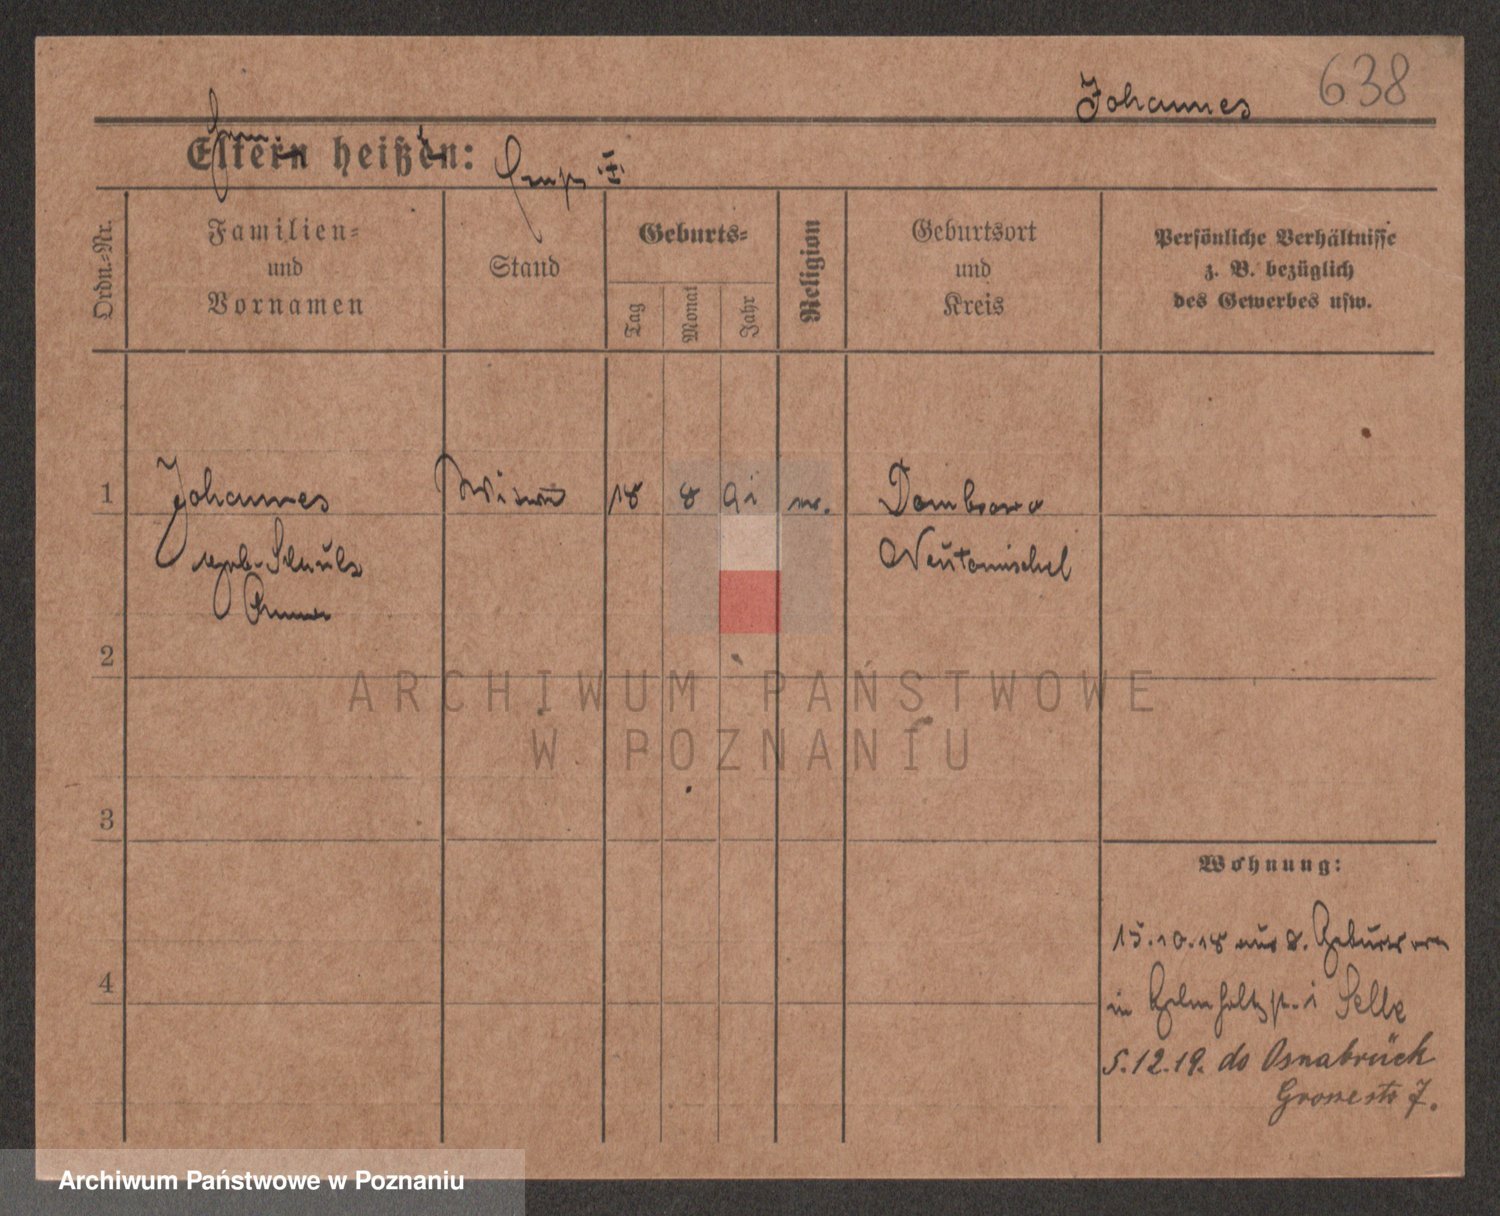 638
Johannes
Eltern heißen:
Ordn.-Nr.
Familien-
und
Vornamen
Stand
Geburts-
Tag
Monat
Jahr
Religion
Geburtsort
und
Kreis
Persönliche Verhältnisse
z. B. bezüglich
des Gewerbes usw.
1
Johannes
18 8 91
Dombrowo
geb. Schulz
Neutomischel
Anna
2
ARCHIWUM PAŃSTWOWE
W POZNANIU
3
Wohnung:
15.10.18 aus 8.
4
in Selle
5.12.19. do Osnabrück
Grosestr 7.
Archiwum Państwowe w Poznaniu